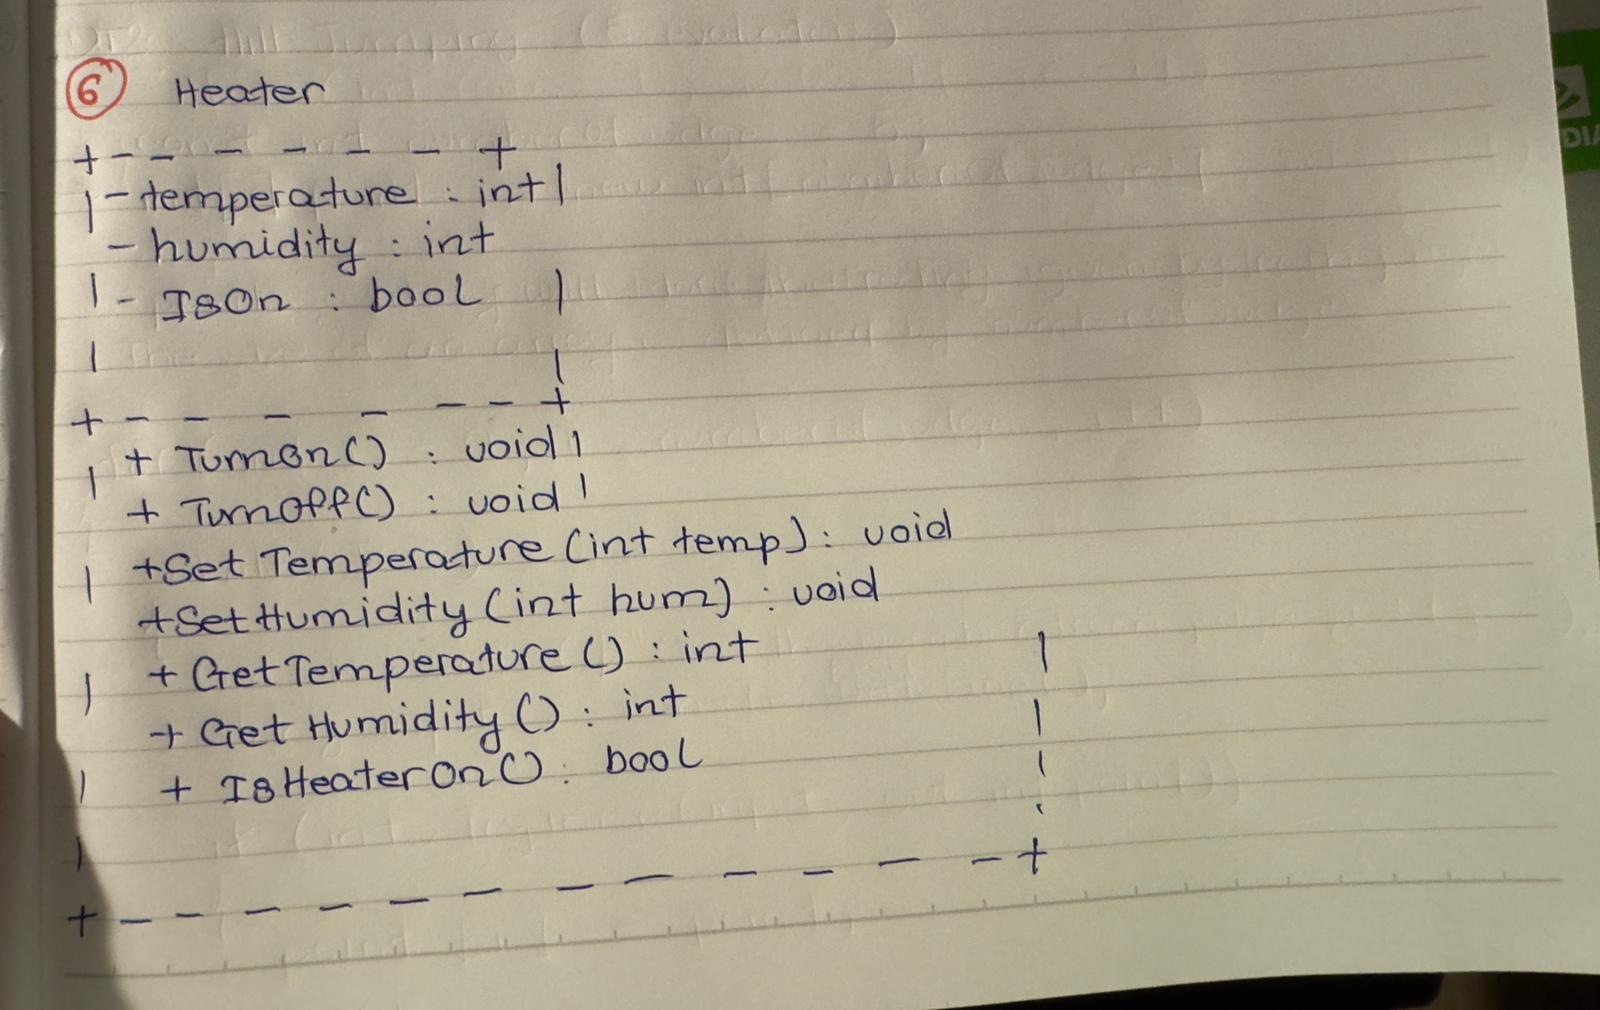 6 Heater
+ - - - - - - - +
| - temperature : int |
- humidity : int
| - IsOn : bool |
| |
+ - - - - - - - +
| + TurnOn() : void |
+ TurnOff() : void |
| + Set Temperature (int temp) : void
+ SetHumidity (int hum) : void
| + GetTemperature () : int |
+ Get Humidity () : int |
| + IsHeaterOn() : bool |
|
+ - - - - - - - - - - - - - +